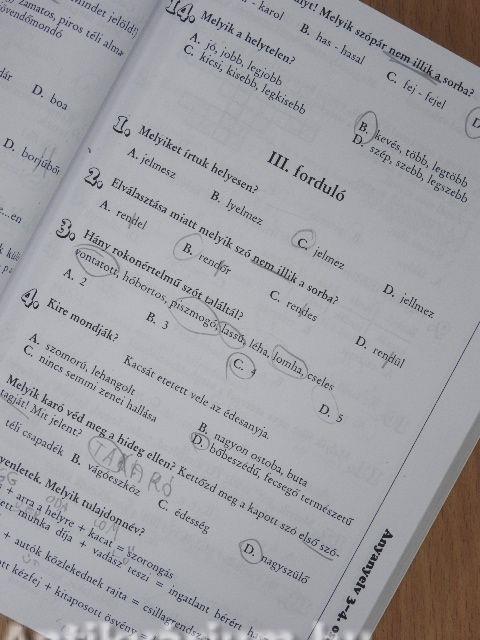 mindent jelöld!)
zamatos, piros téli alma
övendőmondó
D. boa
D. borjúbőr
- karol
B. has - hasal
Melyik szópár nem illik a sorba?
C. fej - fejel
14. Melyik a helytelen?
A. jó, jobb, legjobb
B. kevés, több, legtöbb
C. kicsi, kisebb, legkisebb
D. szép, szebb, legszebb
III. forduló
1. Melyiket írtuk helyesen?
A. jelmesz
B. lyelmez
C. jelmez
D. jellmez
2. Elválasztása miatt melyik szó nem illik a sorba?
A. rendel
B. rendőr
C. rendes
D. rendül
3. Hány rokonértelmű szót találtál?
vontatott, hóbortos, piszmogó, lassú, léha, lomha, cseles
A. 2
B. 3
C. 4
D. 5
4. Kire mondják?
Kacsát etetett vele az édesanyja.
A. szomorú, lehangolt
B. nagyon ostoba, buta
C. nincs semmi zenei hallása
D. bőbeszédű, fecsegő természetű
Melyik karó véd meg a hideg ellen? Kettőzd meg a kapott szó első szó-
tagját! Mit jelent?
TAKARÓ
téli csapadék
B. vágóeszköz
C. édesség
D. nagyszülő
Melyik tulajdonnév?
+ arra a helyre + kacat = szorongás
munka díja + vadász teszi = ingatlant bérért
+ autók közlekednek rajta = csillagrendsz
kézfej + kitaposott ösvény =
Anyanyelv 3-4. o